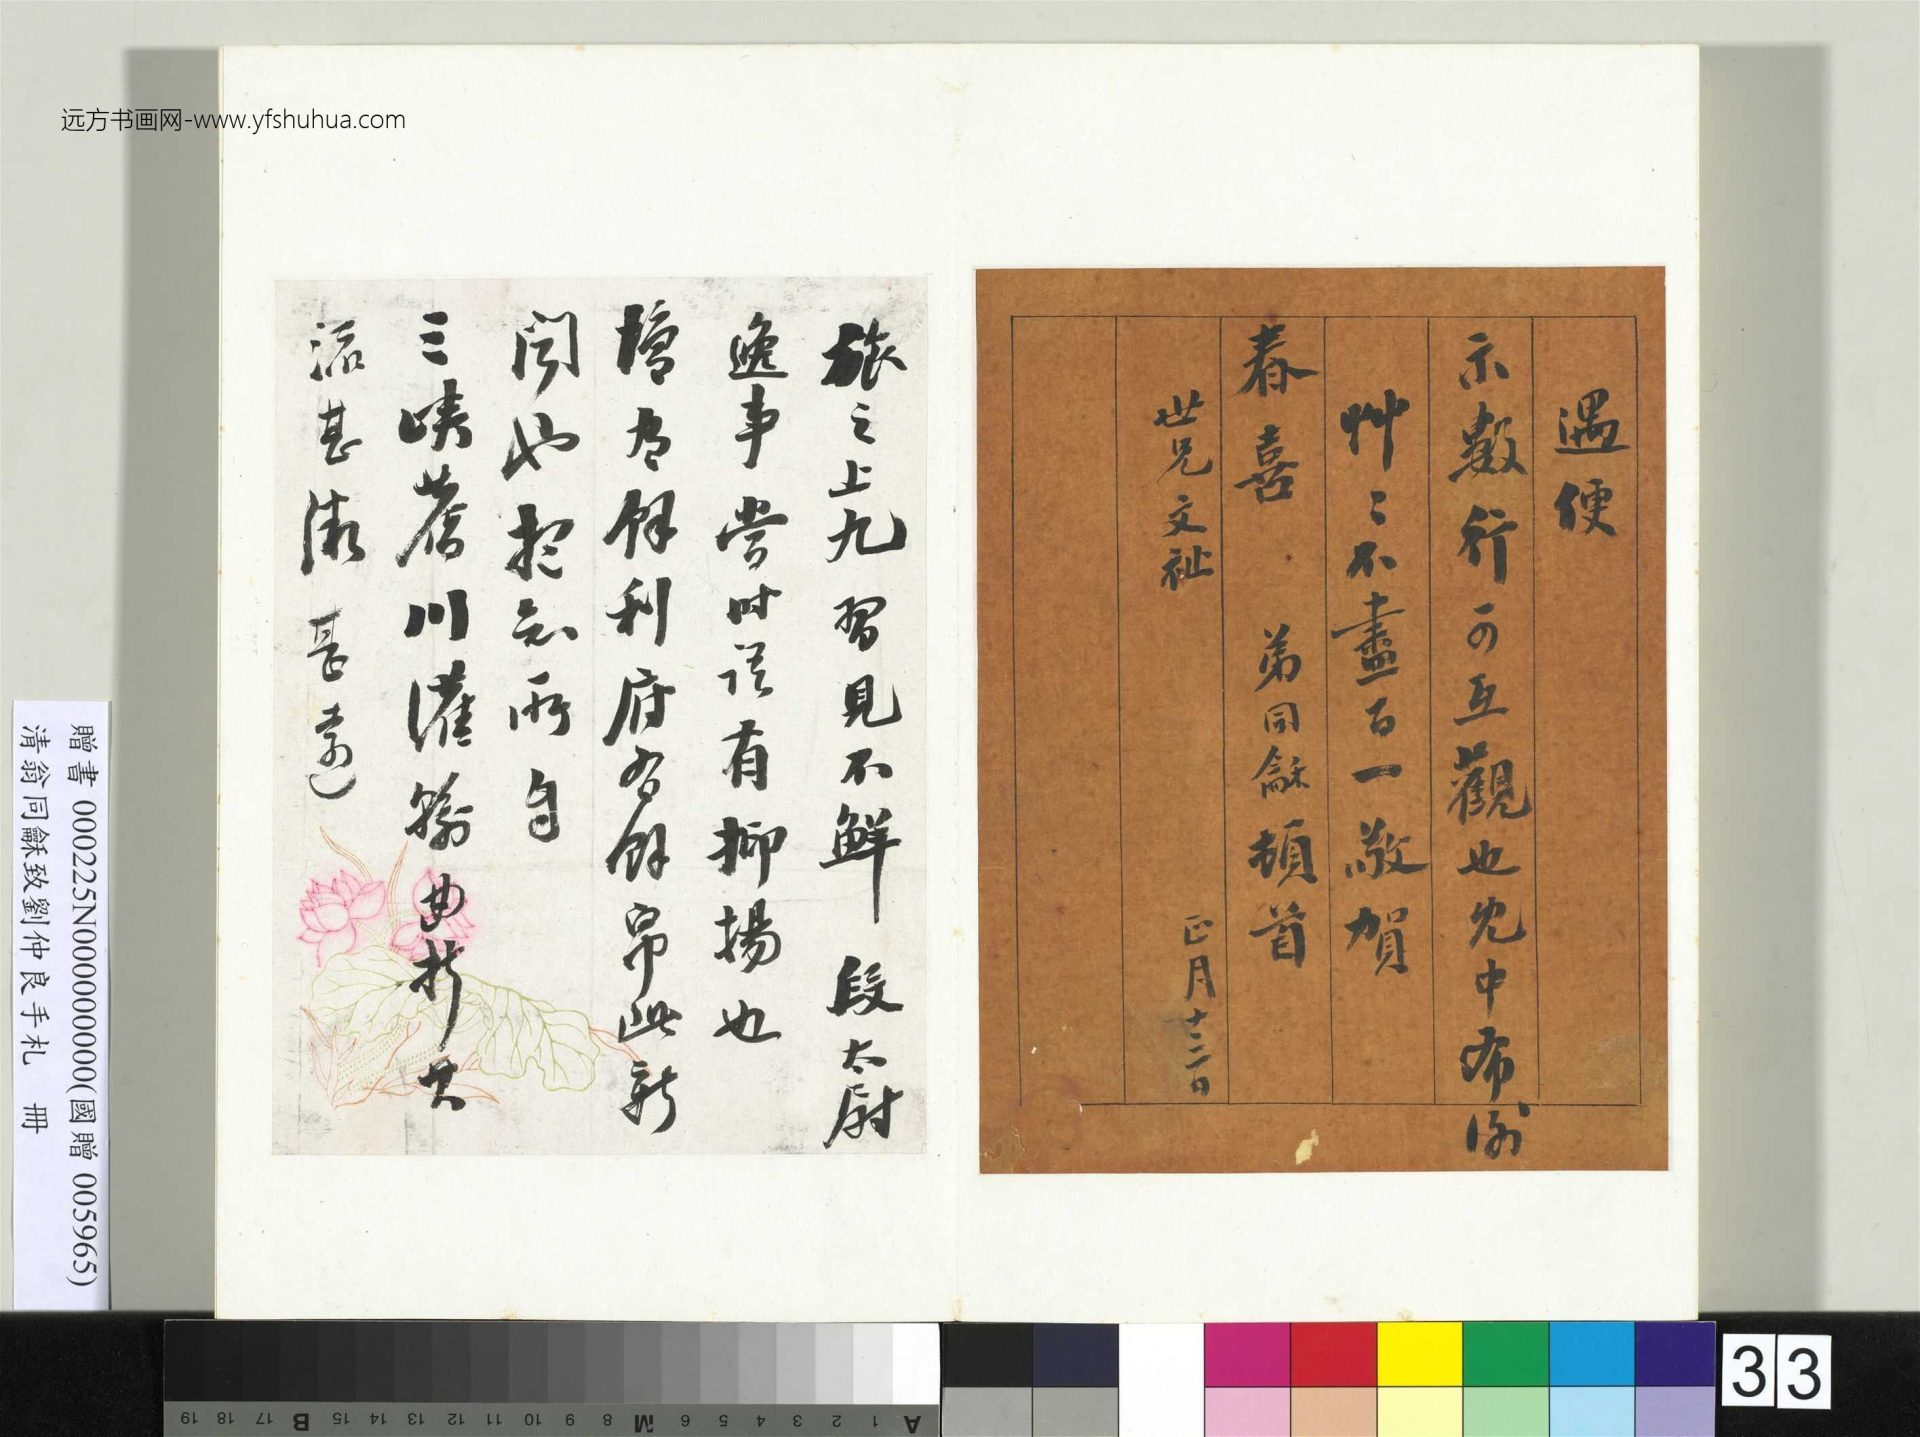 远方书画网-www.yfshuhua.com
遇便
示數行可互觀也先中布謝
艸〻不盡百一敬賀
春喜 弟同龢頓首
世兄文祉 正月十二日
旅之上九習見不鮮段太尉
逸事嘗時誤有抑揚也
餘利府為餘帛此新
聞也
三峽舊川灘 曲折
流甚 甚遠
贈書 000225N000000000(國贈 005965)
清翁同龢致劉仲良手札 冊
33
A 1 2 3 4 5 6 M 8 9 10 11 12 13 14 15 B 17 18 19